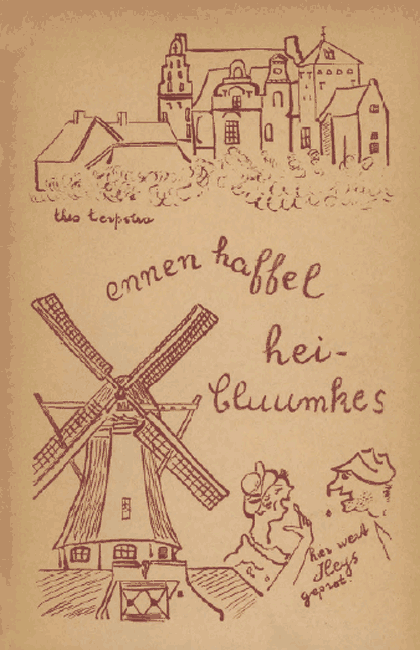 theo terpstra
ennen haffel
hei-
bluumkes
hier wert
Heys
geprot.